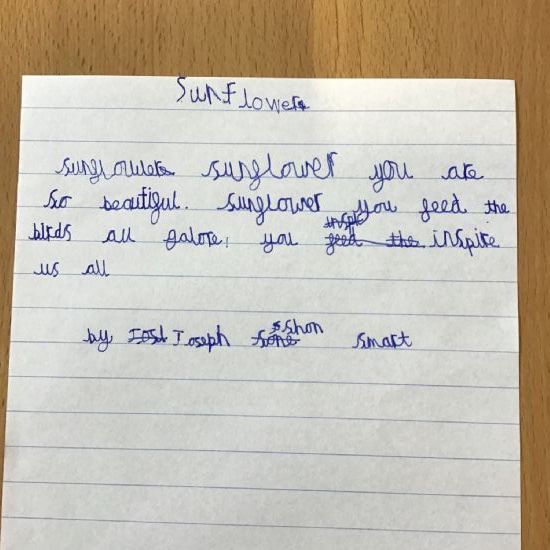 Sunflower
sunflower sunflower you are
so beautiful. sunflower you feed the
birds all galore, you feed the inspire
us all
by Joseph Shon smart